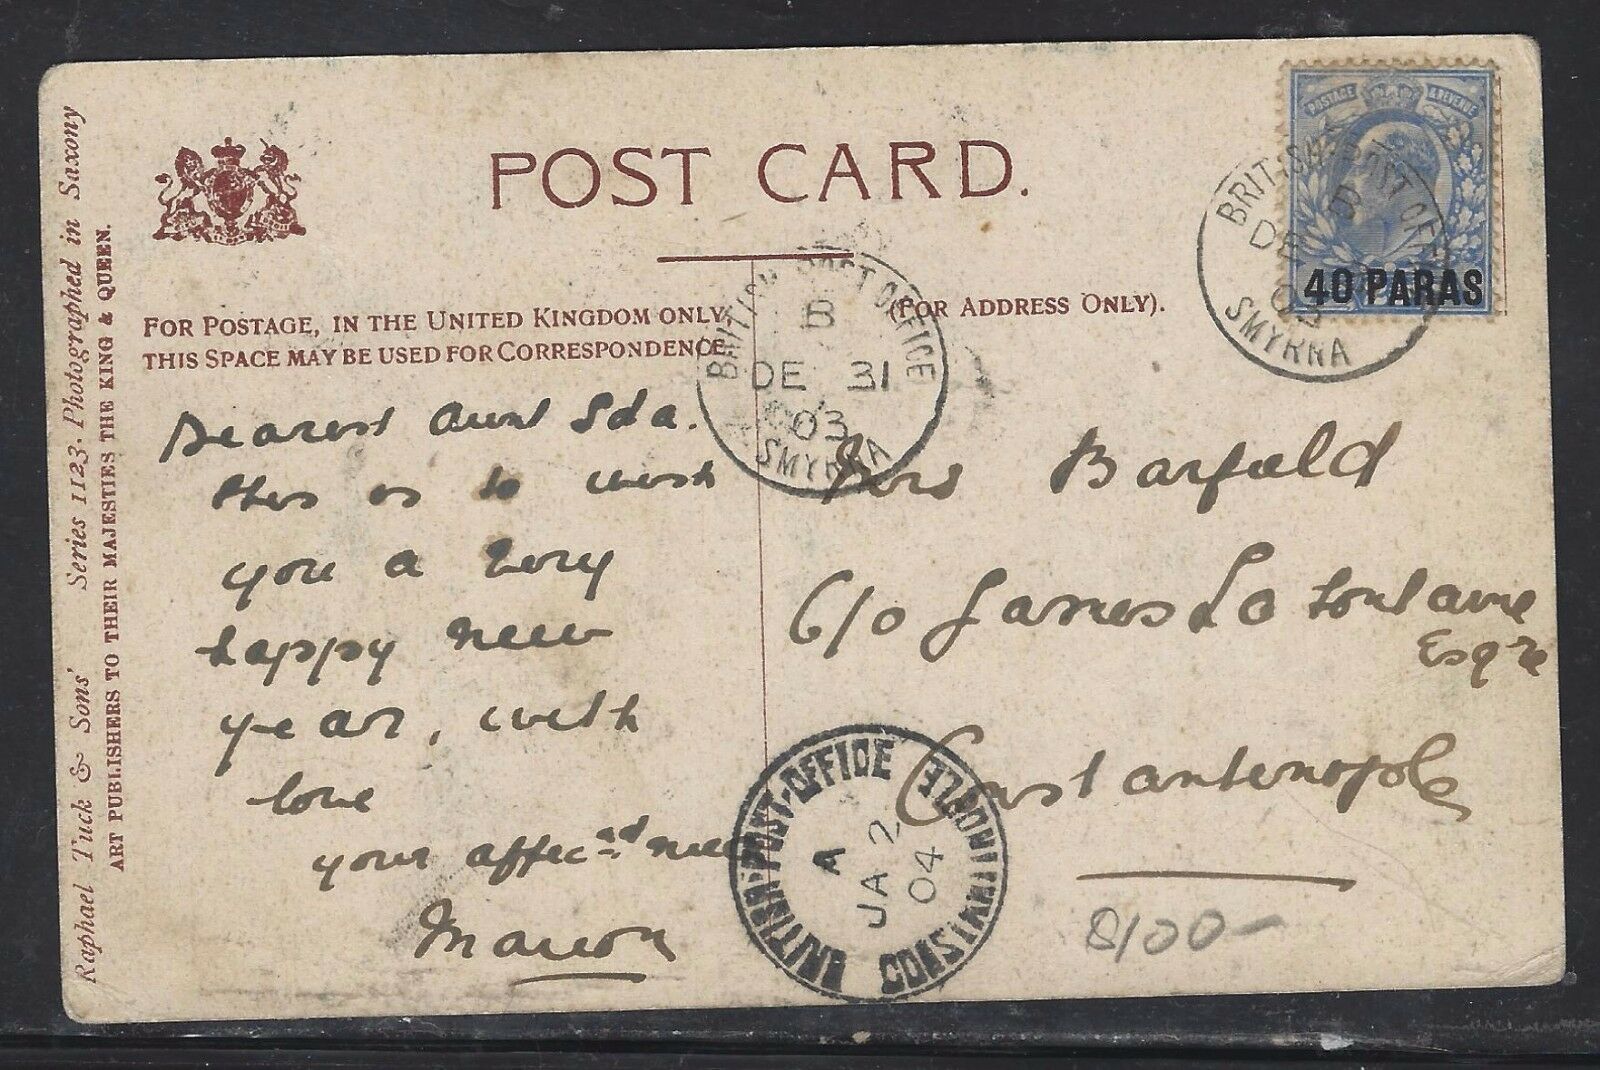 POST CARD.
FOR POSTAGE, IN THE UNITED KINGDOM ONLY,
THIS SPACE MAY BE USED FOR CORRESPONDENCE.
(FOR ADDRESS ONLY).
Raphael Tuck & Sons' Series 1123. Photographed in Saxony
ART PUBLISHERS TO THEIR MAJESTIES THE KING & QUEEN.
POSTAGE & REVENUE
40 PARAS
BRITISH POST OFFICE
B
DE
03
SMYRNA
BRITISH POST OFFICE
B
DE 31
03
SMYRNA
Dearest Aunt Ida.
this is to wish
you a very
happy new
year, with
love
your affec
Marion
Mrs Barfield
C/o James La Fontaine
Esqre
Constantinople
BRITISH·POST·OFFICE
A
JA 2
04
CONSTANTINOPLE
8/00-